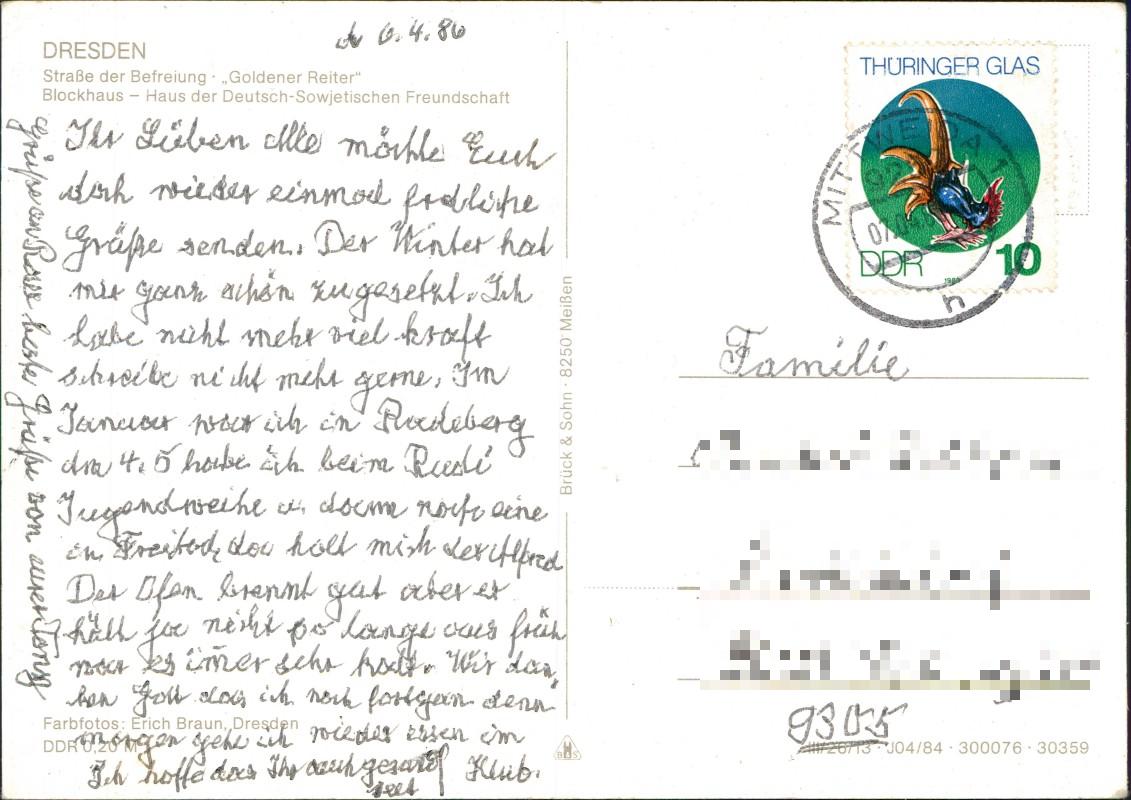 d 6.4.86
DRESDEN
Straße der Befreiung · „Goldener Reiter“
Blockhaus – Haus der Deutsch-Sowjetischen Freundschaft
Ihr Lieben Alle möchte Euch
doch wieder einmal
Grüße senden. Der Winter hat
mir ganz schön zugesetzt. Ich
habe nicht mehr viel kraft
schreibe nicht mehr gerne. Im
Januar war ich in Radeberg
dn 4.5 habe ich beim Rudi
Jugendweihe u. dann noch eine
in Freital, da holt mich der Alfred
Der Ofen brennt gut aber er
hält ja nicht so lange aus früh
war es imer sehr kalt. Wir dan
ken Gott das ich noch fortgen denn
morgen gehe ich wieder essen im
Klub.
Ich hoffe das Ihr auch gesund
seit
Grüße an beste Grüße von
Farbfotos: Erich Braun, Dresden
DDR 0,20 M
Brück & Sohn · 8250 Meißen
BHS
THÜRINGER GLAS
DDR 10
MITTWEIDA 1
h
Familie
9305
III/26/13 · J04/84 · 300076 · 30359